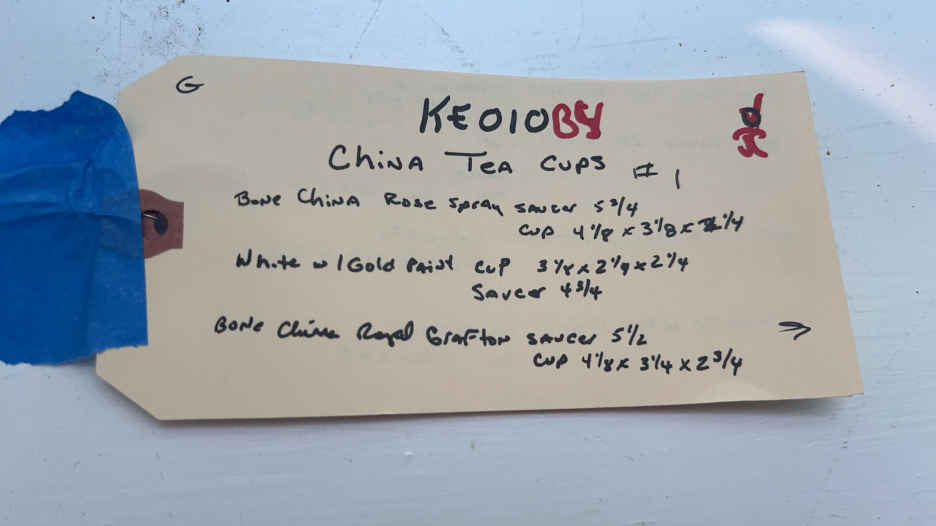 G
KE010BY
China Tea Cups #1
Bone China Rose Spray saucer 5 3/4
cup 4 1/8 x 3 1/8 x 1/4
White w/Gold Paint cup 3 1/8 x 2 1/4 x 2 1/4
Saucer 4 3/4
Bone China Royal Grafton saucer 5 1/2
cup 4 1/8 x 3 1/4 x 2 3/4